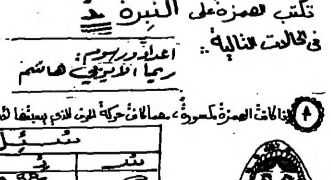 تكتب الهمزة على النبرة ئـ
في الحالات التالية:
اعداد ورسوم:
ريما الايوبي هاشم
إذا كانت الهمزة مكسورة، مهما كانت حركة الحرف الذي يسبقها
سُئِلَ